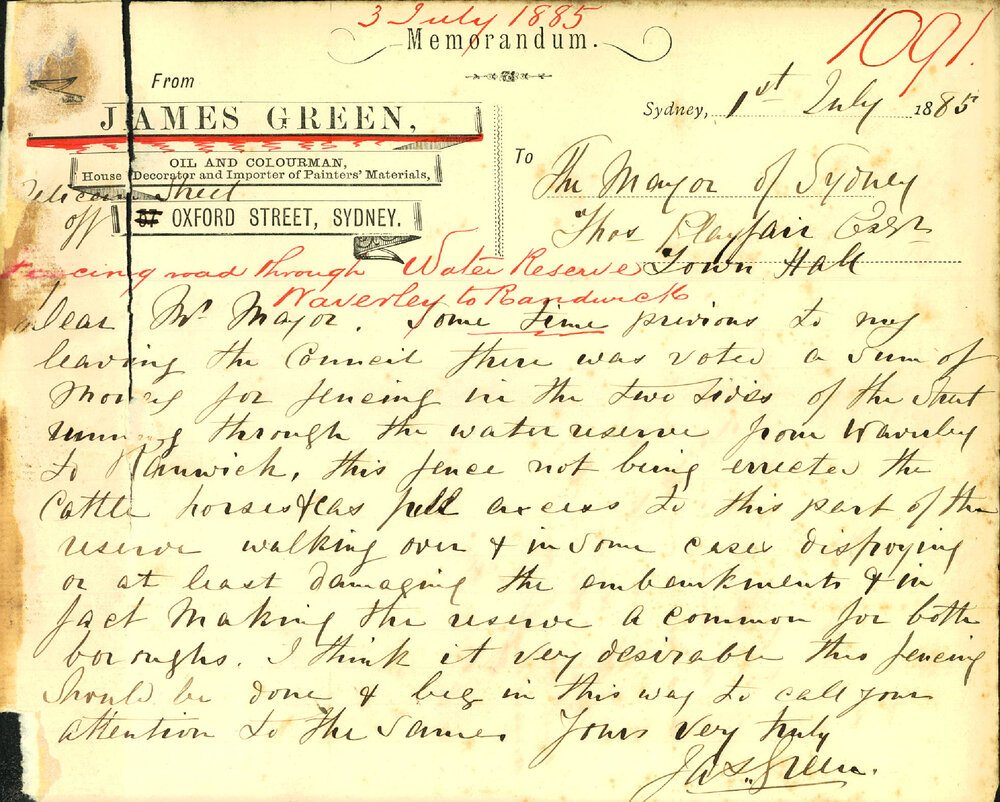 3 July 1885
Memorandum.
1091.
From
JAMES GREEN,
OIL AND COLOURMAN,
House Decorator and Importer of Painters' Materials,
Street
off 37 OXFORD STREET, SYDNEY.
Sydney, 1st July 1885
To
The Mayor of Sydney
Thos Playfair Esqr
Town Hall
Fencing road through Water Reserve
Waverley to Randwick
Dear Mr Mayor. Some time previous to my
leaving the Council there was voted a sum of
money for fencing in the two sides of the street
running through the water reserve from Waverley
to Ranwick, this fence not being errected the
Cattle horses &c as full access to this part of the
reserve walking over & in some cases distroying
or at least damaging the embankments & in
fact making the reserve a common for both
boroughs. I think it very desirable this fencing
should be done & beg in this way to call your
attention to the same. Yours very truly
Jas. Green.